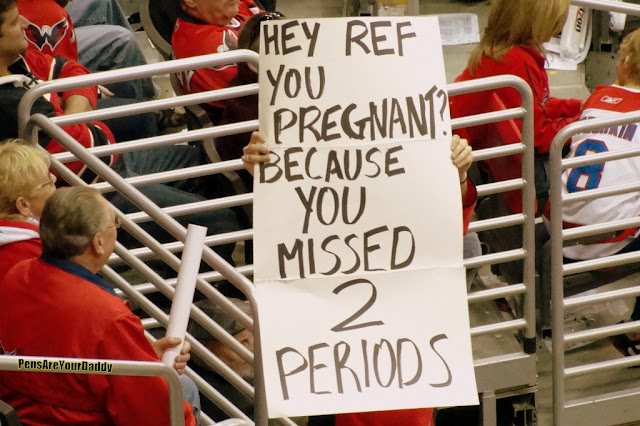 HEY REF
YOU
PREGNANT?
BECAUSE
YOU
MISSED
2
PERIODS
PensAreYourDaddy
8